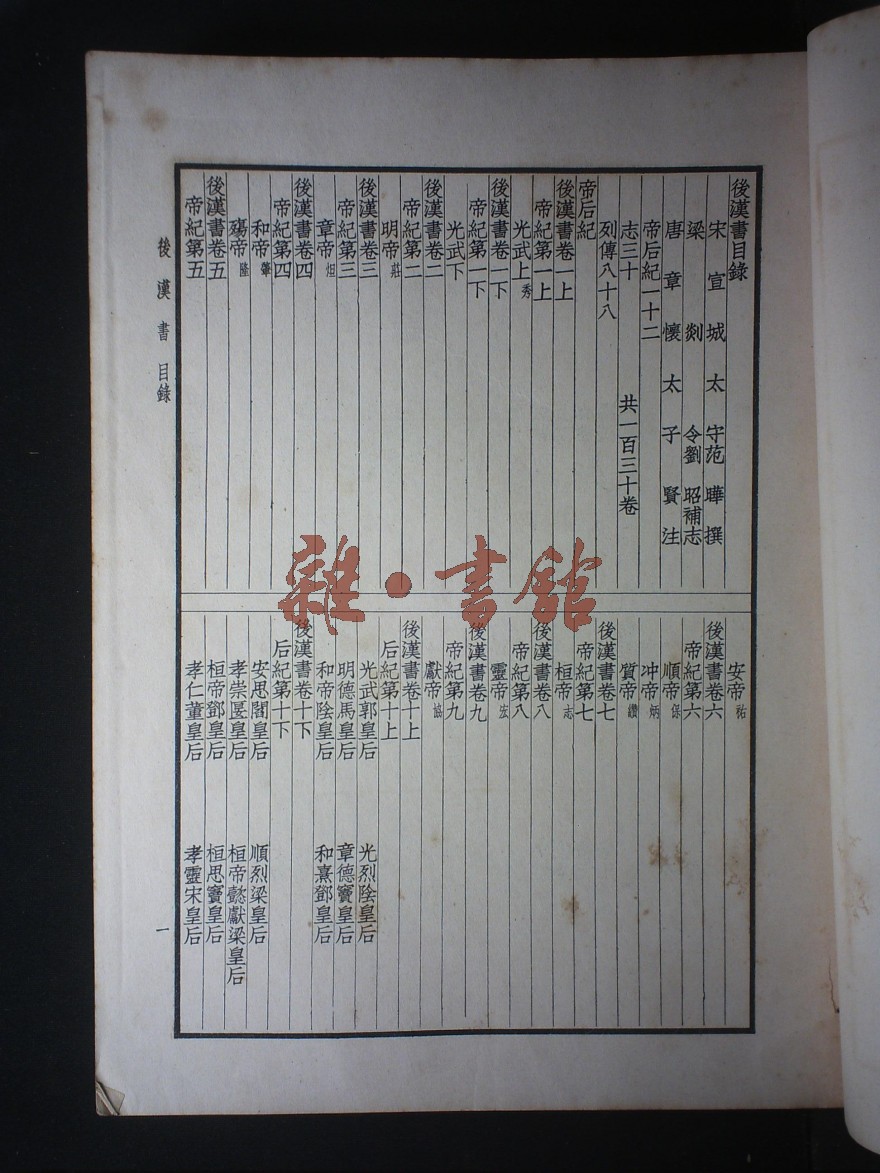 後漢書目錄
宋宣城太守范曄撰
梁剡令劉昭補志
唐章懷太子賢注
帝后紀一十二
志三十 共一百三十卷
列傳八十八
帝后紀
後漢書卷一上
帝紀第一上
光武上秀
後漢書卷一下
帝紀第一下
光武下
後漢書卷二
帝紀第二
明帝莊
後漢書卷三
帝紀第三
章帝炟
後漢書卷四
帝紀第四
和帝肇
殤帝隆
後漢書卷五
帝紀第五
安帝祜
後漢書卷六
帝紀第六
順帝保
冲帝炳
質帝纘
後漢書卷七
帝紀第七
桓帝志
後漢書卷八
帝紀第八
靈帝宏
後漢書卷九
帝紀第九
獻帝協
後漢書卷十上
后紀第十上
光武郭皇后 光烈陰皇后
明德馬皇后 章德竇皇后
和帝陰皇后 和熹鄧皇后
後漢書卷十下
后紀第十下
安思閻皇后 順烈梁皇后
孝崇匽皇后 桓帝懿獻梁皇后
桓帝鄧皇后 桓思竇皇后
孝仁董皇后 孝靈宋皇后
後漢書 目錄
一
雜·書館